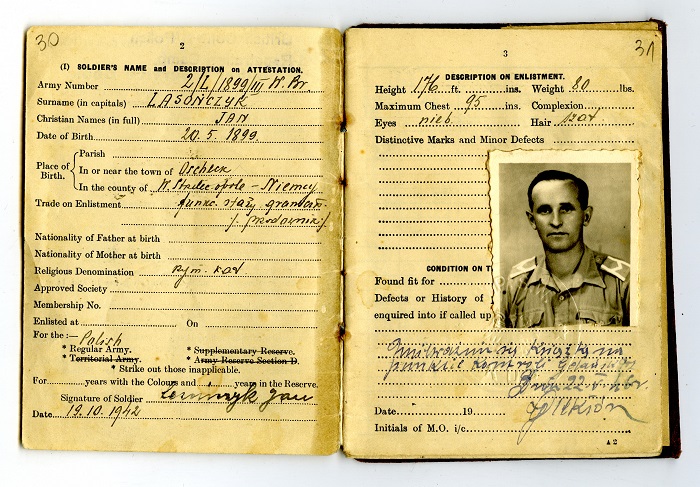 30
2
(I) SOLDIER'S NAME and DESCRIPTION on ATTESTATION.
Army Number 2/L/1899/III
Surname (in capitals) LASOŃCZYK
Christian Names (in full) JAN
Date of Birth 20.5.1899
Place of Birth.
Parish
In or near the town of
In the county of Niemcy
Trade on Enlistment
Nationality of Father at birth
Nationality of Mother at birth
Religious Denomination rzym. kat
Approved Society
Membership No.
Enlisted at On
For the:— Polish
* Regular Army. * Supplementary Reserve.
* Territorial Army. * Army Reserve Section D.
* Strike out those inapplicable.
For years with the Colours and years in the Reserve.
Signature of Soldier Jan
Date 19.10.1942
31
3
DESCRIPTION ON ENLISTMENT.
Height 176 ft. ins. Weight 80 lbs.
Maximum Chest 95 ins. Complexion
Eyes nieb. Hair
Distinctive Marks and Minor Defects
CONDITION ON
Found fit for
Defects or History of
enquired into if called up
Date 19
Initials of M.O. i/c
A 2